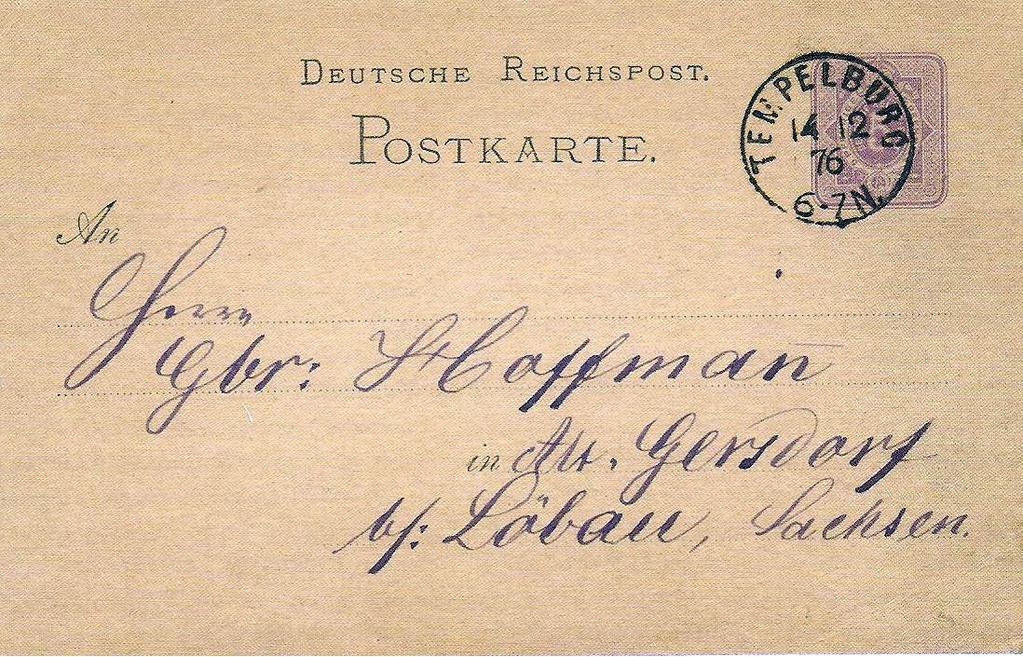 DEUTSCHE REICHSPOST.
POSTKARTE.
TEMPELBURG
14 12
76
6-7N.
An
Herrn
Gbr: Hoffman̄
in Alt. Gersdorf
b/: Löbau, Sachsen.